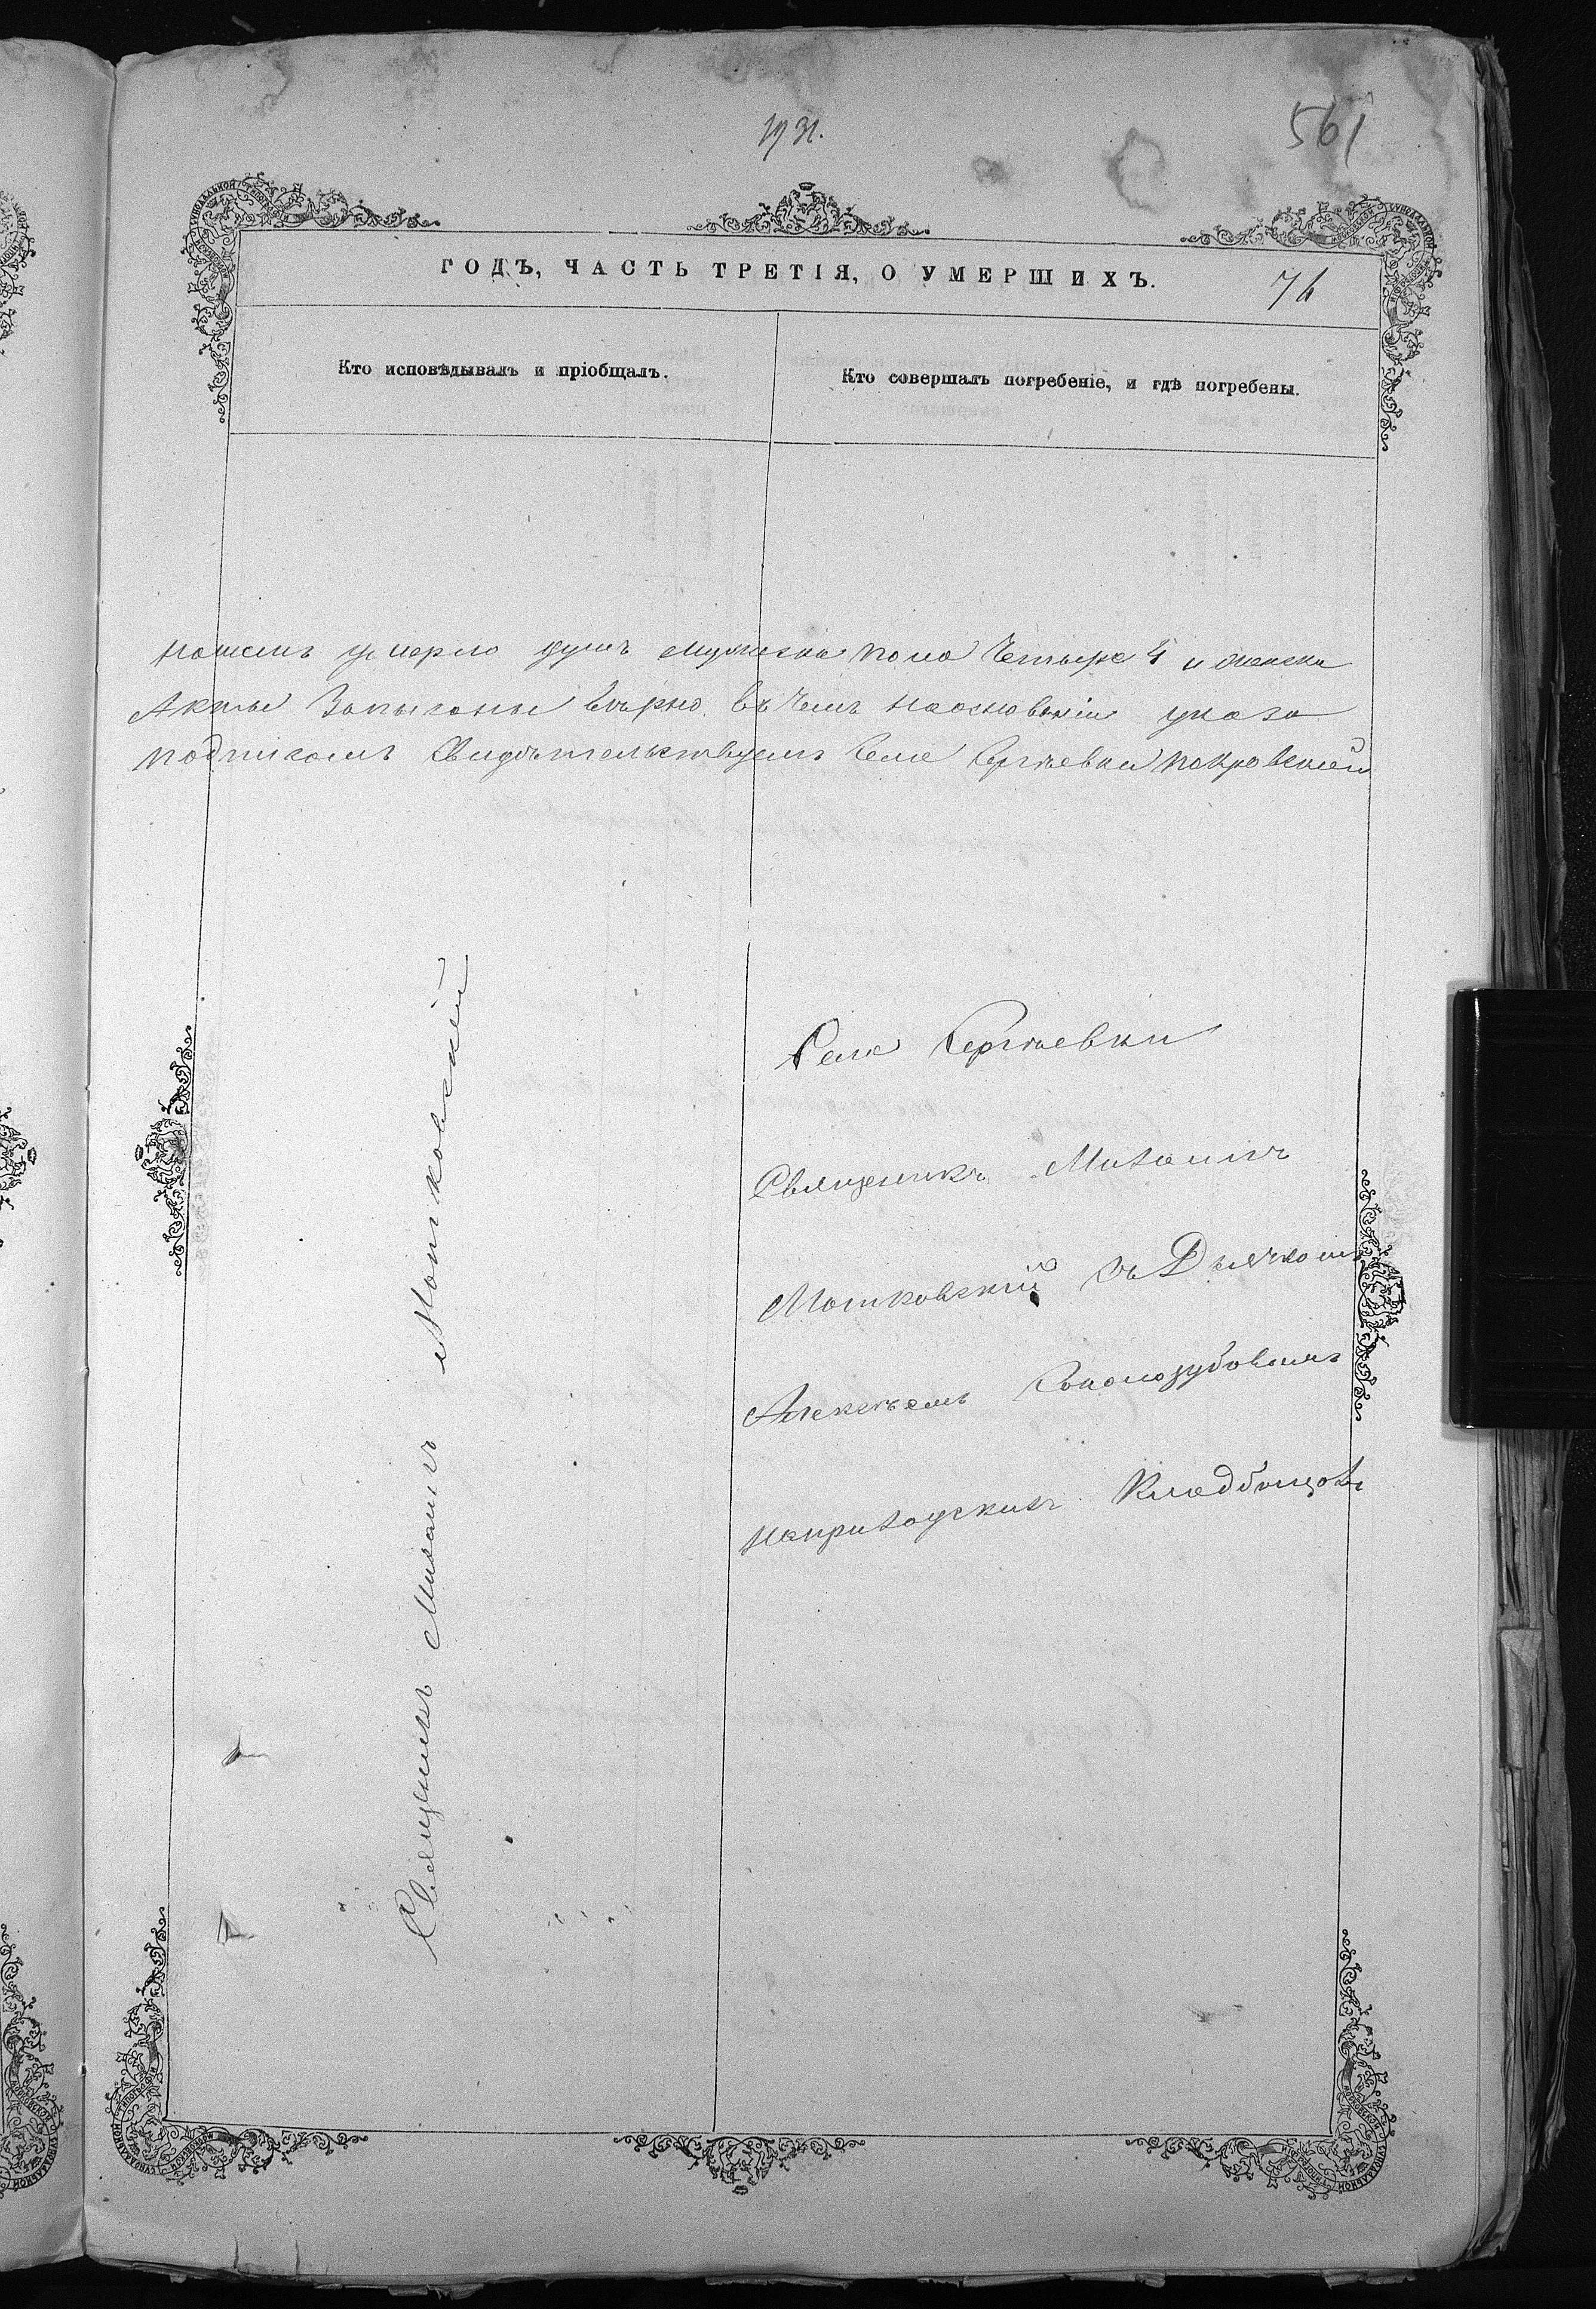 1931.
561
ГОДЪ, ЧАСТЬ ТРЕТІЯ, О УМЕРШИХЪ.
76
Кто исповѣдывалъ и пріобщалъ.
Кто совершалъ погребеніе, и гдѣ погребены.
умерло душъ мужска пола Четыре 4 и женска
Акты Записаны вѣрно въ чемъ наоснованіи указа
подписомъ Свидѣтельствуемъ Села Сергѣевки покровской
Священикъ Михаилъ Мотковскій
Села Сергѣевки
Священикъ Михаилъ
Мотковскій съ Дьячкомъ
Алексѣемъ
наприходскихъ Кладбищовъ